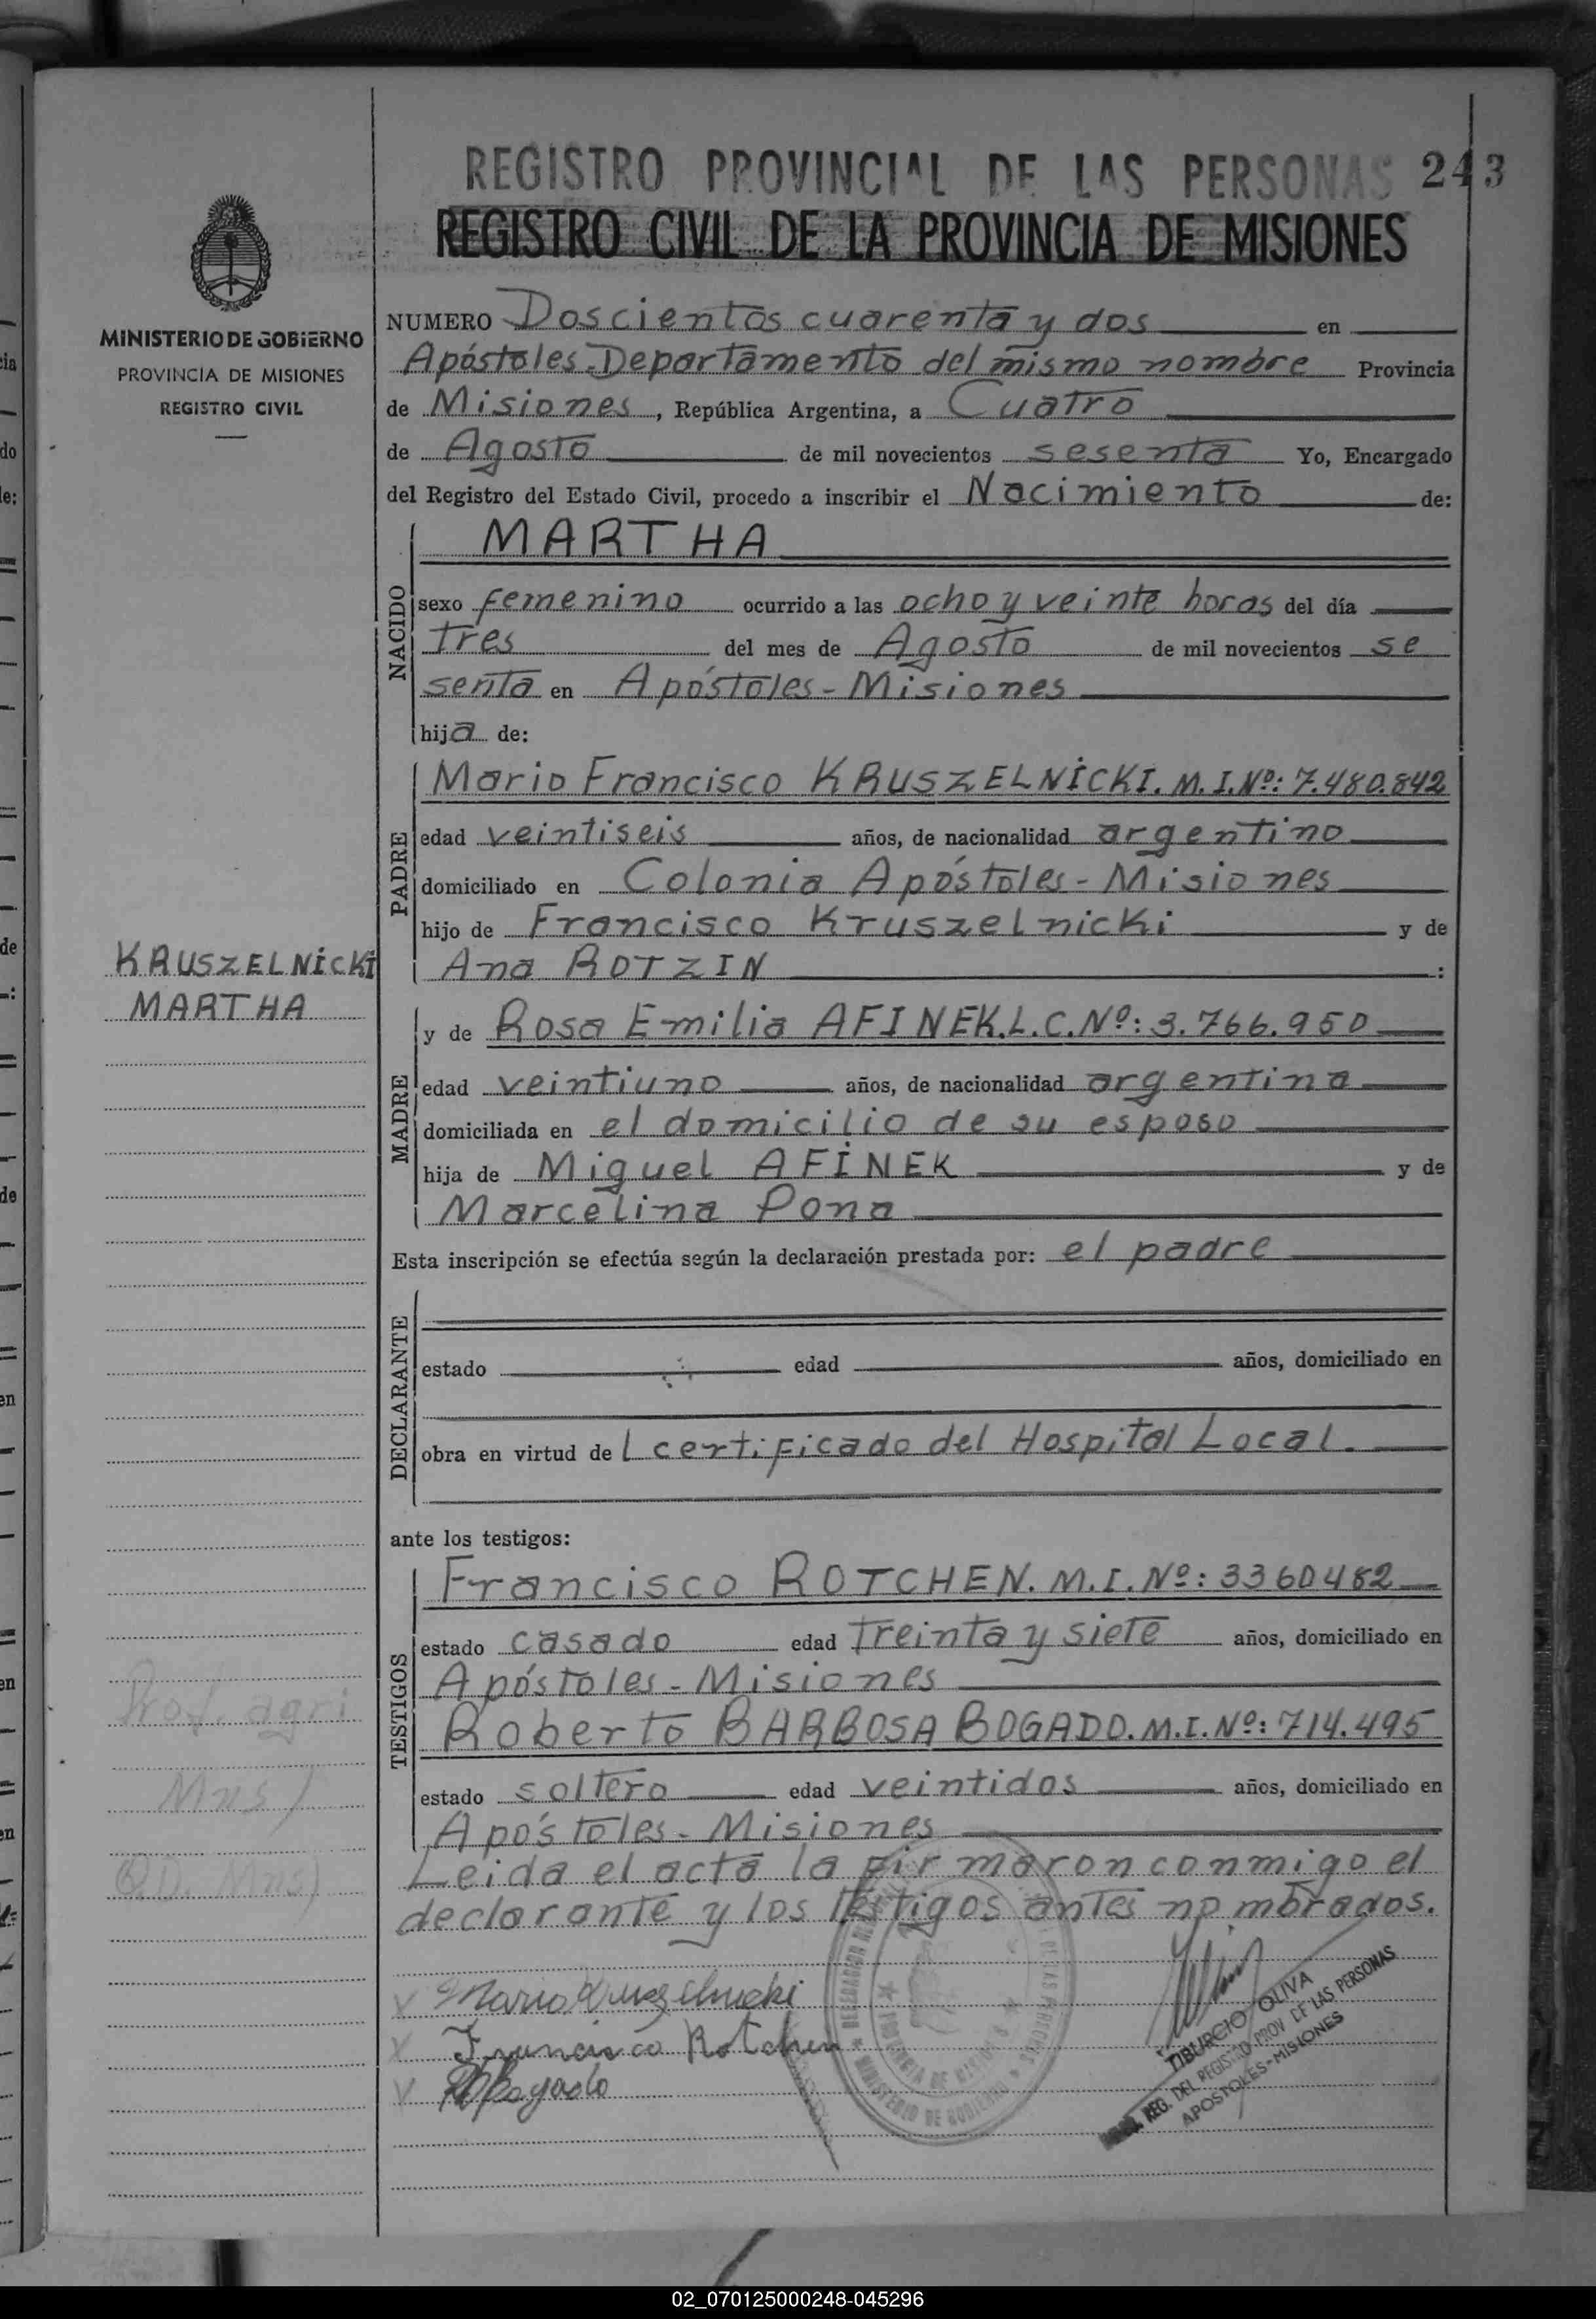 REGISTRO PROVINCIAL DE LAS PERSONAS 243
REGISTRO CIVIL DE LA PROVINCIA DE MISIONES
MINISTERIO DE GOBIERNO
PROVINCIA DE MISIONES
REGISTRO CIVIL
NUMERO Doscientos cuarenta y dos en
Apóstoles. Departamento del mismo nombre Provincia
de Misiones, República Argentina, a Cuatro
de Agosto de mil novecientos sesenta Yo, Encargado
del Registro del Estado Civil, procedo a inscribir el Nacimiento de:
NACIDO
MARTHA
sexo femenino ocurrido a las ocho y veinte horas del día
tres del mes de Agosto de mil novecientos se
senta en Apóstoles - Misiones
hija de:
PADRE
Mario Francisco KRUSZELNICKI. M.I.Nº: 7.480.842
edad veintiseis años, de nacionalidad argentino
domiciliado en Colonia Apóstoles - Misiones
hijo de Francisco Kruszelnicki y de
Ana ROTZIN :
KRUSZELNICKI
MARTHA
MADRE
y de Rosa Emilia AFINEK. L.C.Nº: 3.766.950
edad veintiuno años, de nacionalidad argentina
domiciliada en el domicilio de su esposo
hija de Miguel AFINEK y de
Marcelina Pona
Esta inscripción se efectúa según la declaración prestada por: el padre
DECLARANTE
estado edad años, domiciliado en
obra en virtud de l certificado del Hospital Local.
ante los testigos:
TESTIGOS
Francisco ROTCHEN. M.I.Nº: 3360482
estado casado edad treinta y siete años, domiciliado en
Apóstoles - Misiones
Roberto BARBOSA BOGADO. M.I.Nº: 714.495
estado soltero edad veintidos años, domiciliado en
Apóstoles - Misiones
Prof. agri
Mns)
Leida el acta la firmaron conmigo el
declarante y los testigos antes nombrados.
Mario Kruszelnicki
Francisco Rotchen
RBBogado
PROVINCIA DE MISIONES
MINISTERIO DE GOBIERNO
TIBURCIO OLIVA
REG. DEL REGISTRO PROV DE LAS PERSONAS
APOSTOLES - MISIONES
02_070125000248-045296